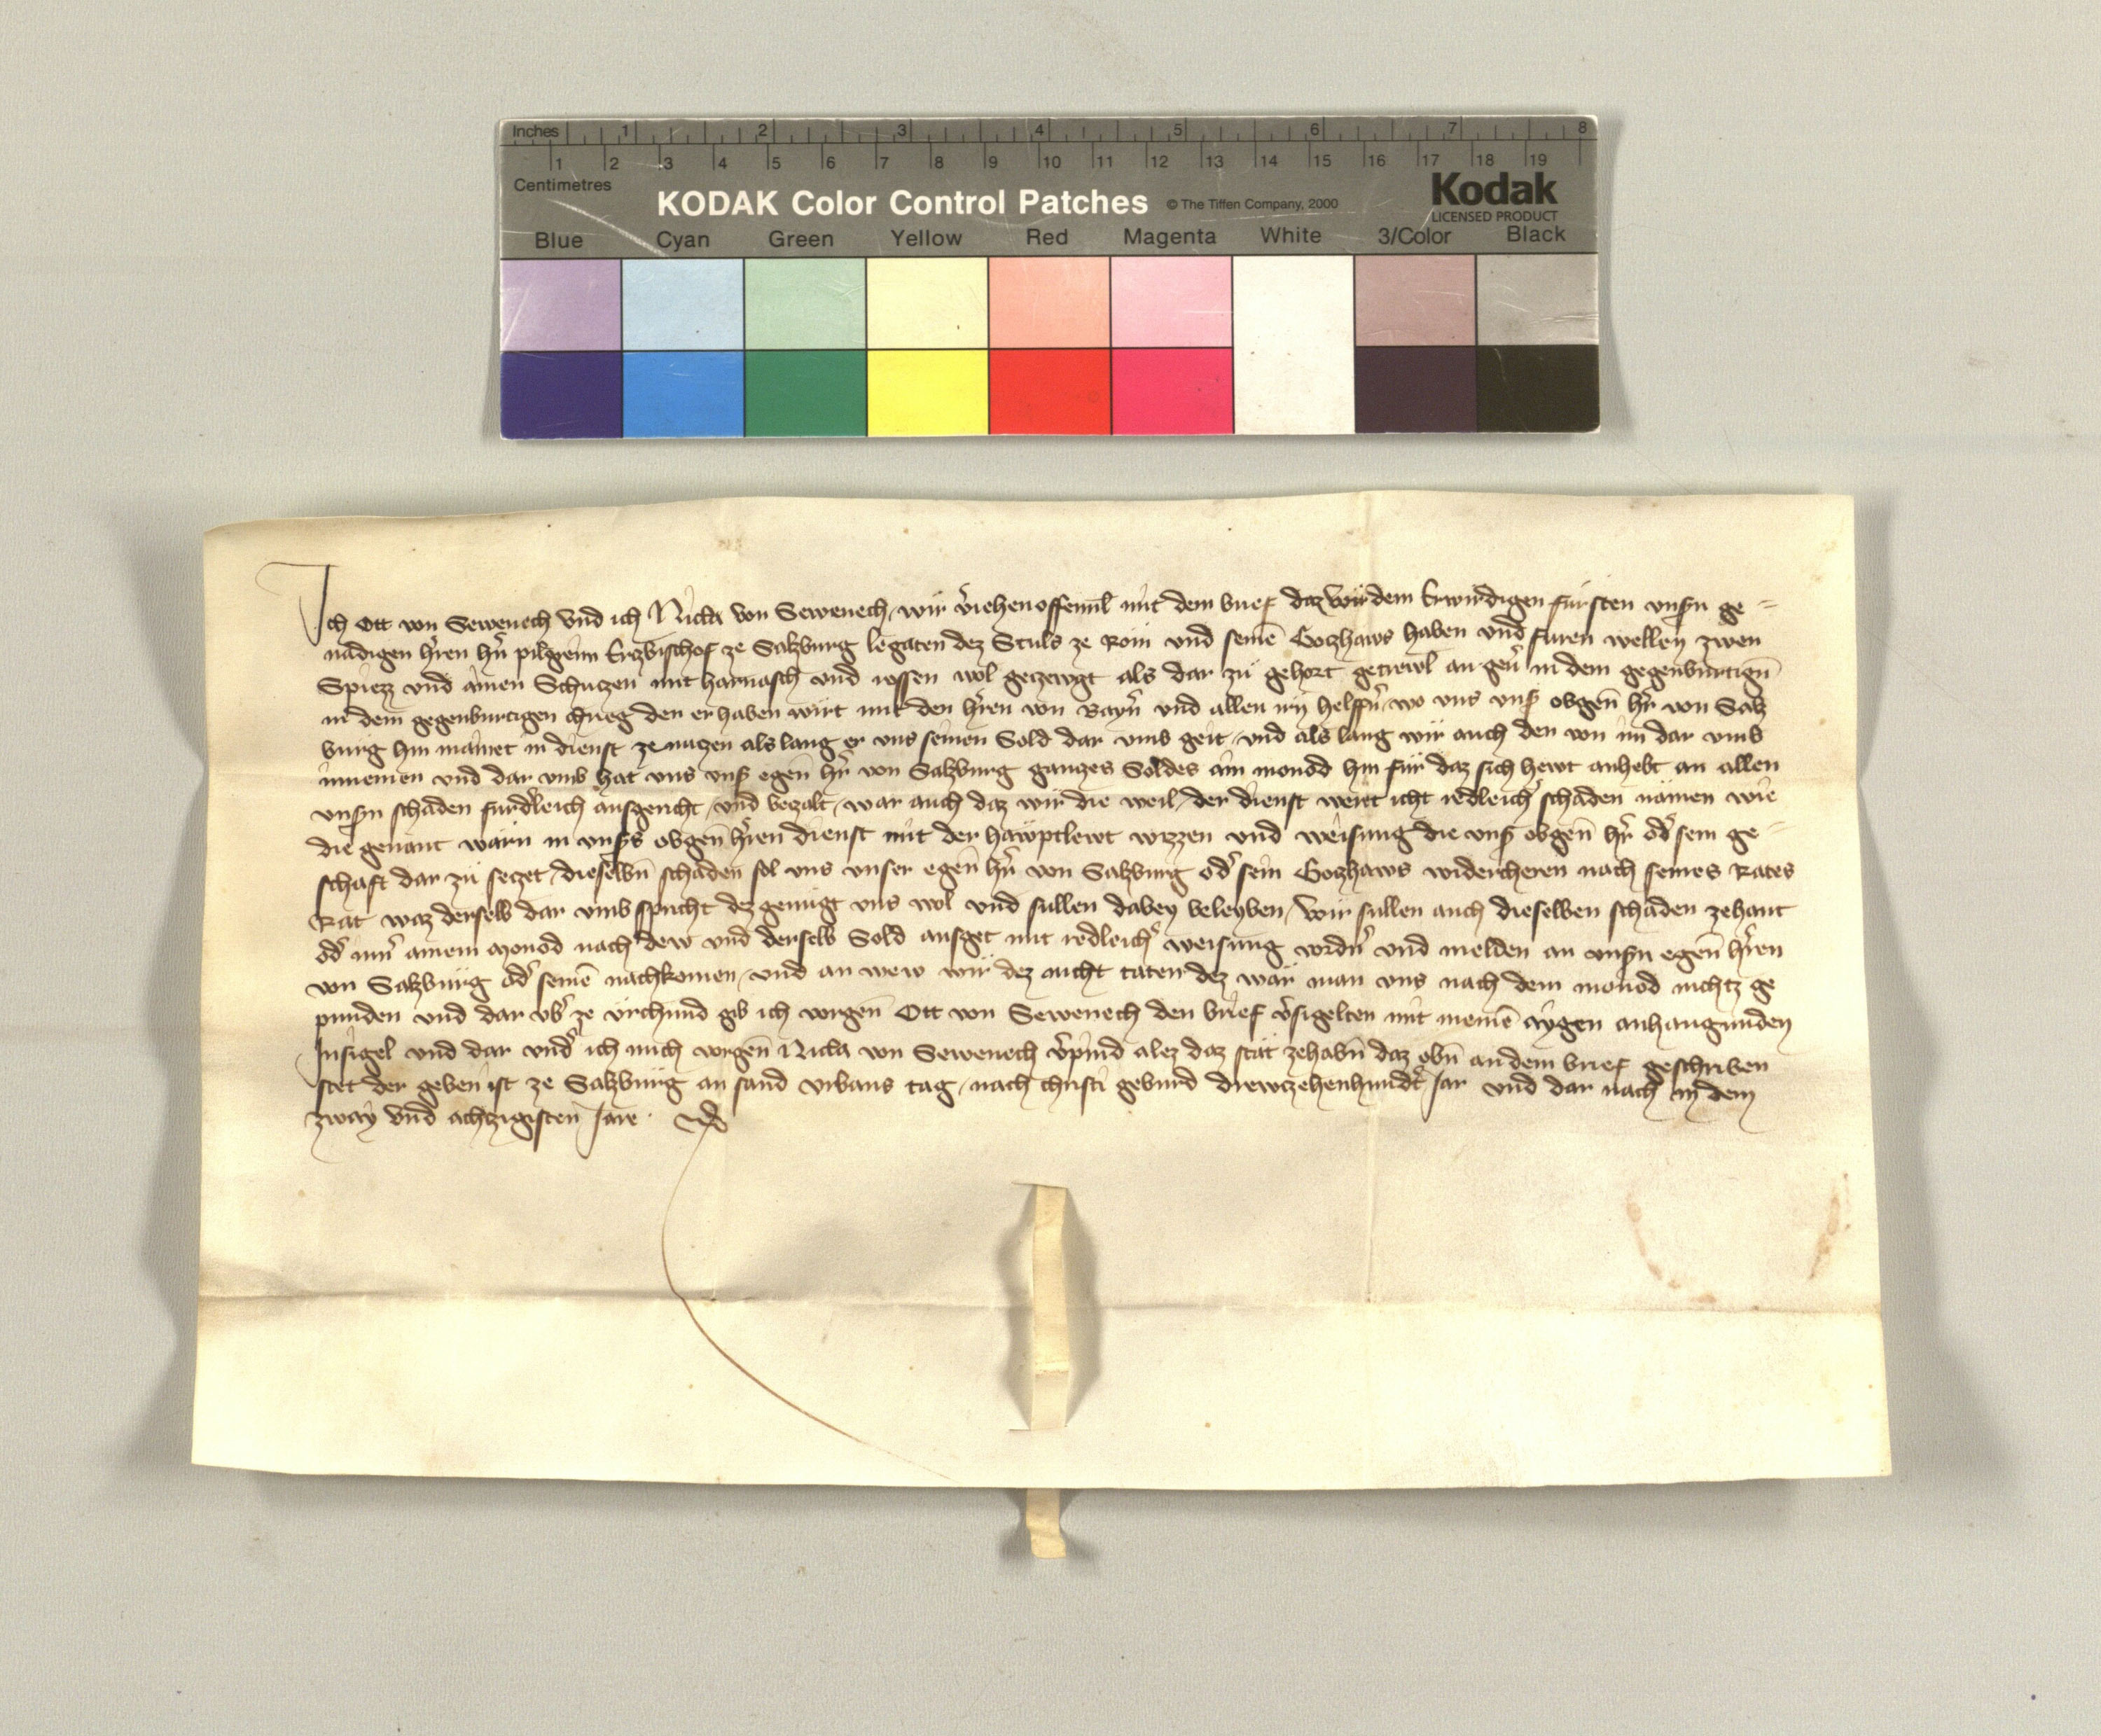 Inches 1 2 3 4 5 6 7 8
1 2 3 4 5 6 7 8 9 10 11 12 13 14 15 16 17 18 19
Centimetres
KODAK Color Control Patches © The Tiffen Company, 2000 Kodak
LICENSED PRODUCT
Blue Cyan Green Yellow Red Magenta White 3/Color Black
Ich Ott von Sewenech vnd ich Nicla von Sewenech, wir v̄iehen offennl̄ mit dem brief daz wir dem Erwirdigen fürsten vnsn̄ ge=
nädigen h̄ren hn̄ pilgreim Erzbischof ze Salzburg legaten dez Stuls ze Rom und seinē Gotzhaws haben vnd füren wellen zwen
Spiezz vnd ainen Schuczen mit harnasch vnd rossen wol geczewgt als dar zü gehort getrewl̄ an geū in dem gegenburtign̄
in dem gegenburtigen chrieg den er haben wirt mit den h̄ren von Bayn̄ vnd allen irn̄ helffn̄ wo vns vns̄ obgen̄ hr̄ von Salz
burg hin mainet in dienst ze nuczen als lang er vns seinen Sold dar vmb geit, vnd als lang wir auch den von im dar vmb
innemen vnd dar vmb hat vns vns̄ egen̄ hr̄ von Salzburg ganczes Soldes ain monod hin für daz sich hewt anhebt an allen
vnsn̄ schäden furdl̄eich ausgericht, vnd beczalt, war auch daz wir die weil, der dienst wert icht redleich̄ schäden nämen wie
die genant wärn in vnss̄ obgen̄ h̄ren dienst mit der hawptlewt wizzen vnd weisung die vns̄ obgen̄ hr̄ od̄ sein ge=
schäft dar zü seczet, dieselbn̄ schäden sol vns vnser egen̄ hr̄ von Salzburg od̄ sein Gotzhaws widercheren nach seines Rates
Rat waz derselb dar vmb spricht dez genügt vns wol vnd süllen dabey beleyben, wir süllen auch dieselben schäden zehant
od̄ inn̄ ainem monod nach dew vnd derselb Sold ausget mit redleich̄ weisung vordn̄ vnd melden an vnsn̄ egen̄ h̄ren
von Salzburg od̄ seinē nachkomen, vnd an wew wir dez nicht taten dez wär man vns nach dem monod nichtz ge
punden vnd dar vb̄ ze vrchund gib ich vorgen̄ Ott von Sewenech den brief v̄sigelten mit meinē aygen anhangunden
Insigel vnd dar vnd̄ ich mich vorgen̄ Nicla von Sewenech v̄pind alez daz stät zehabn̄ daz obn̄ an dem brief geschriben
stet der geben ist ze Salzburg an sand vrbans tag, nach christi geburd drewczehenhundt̄ Jar vnd dar nach in dem
zway vnd achzigisten Jare.